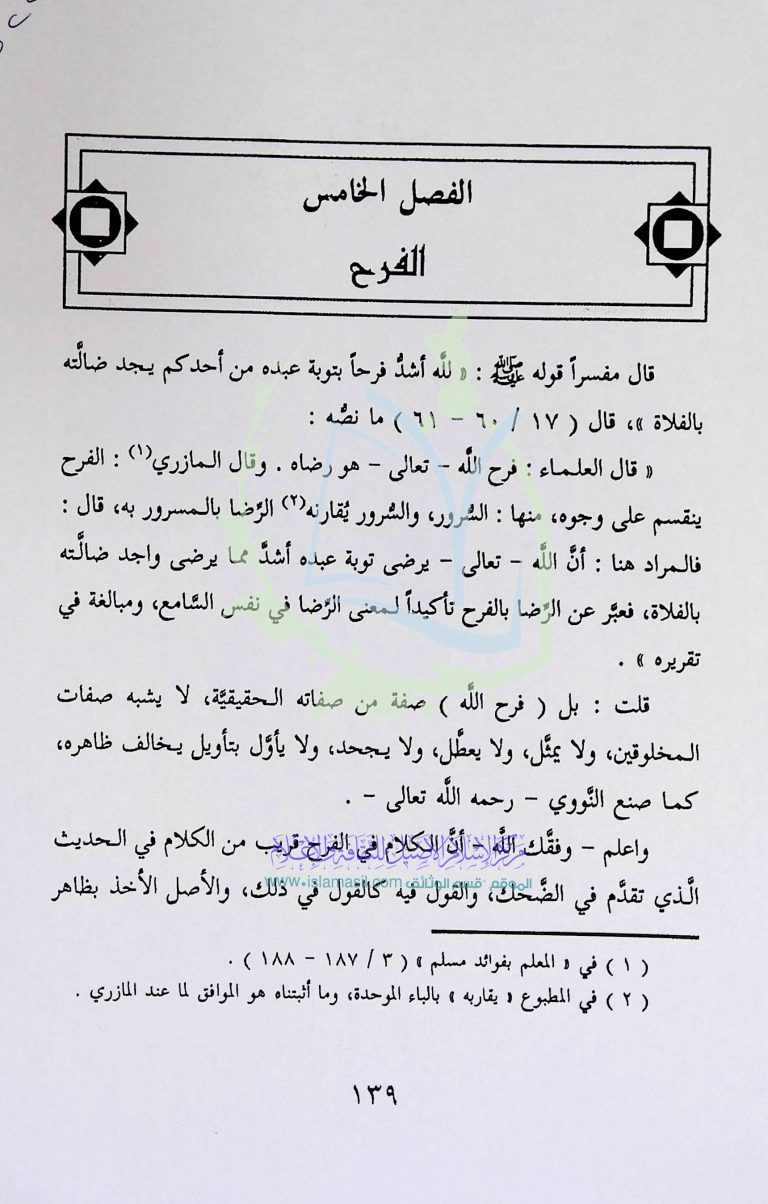 الفصل الخامس
الفرح
قال مفسراً قوله ﷺ : « للَّه أشدُّ فرحاً بتوبة عبده من أحدكم يجد ضالَّته
بالفلاة »، قال ( ١٧ / ٦٠ – ٦١ ) ما نصُّه :
« قال العلماء : فرح اللَّه – تعالى – هو رضاه . وقال المازري(١) : الفرح
ينقسم على وجوه، منها : السُّرور، والسُّرور يُقارنه(٢) الرِّضا بالمسرور به، قال :
فالمراد هنا : أنَّ اللَّه – تعالى – يرضى توبة عبده أشدَّ مما يرضى واجد ضالَّته
بالفلاة، فعبَّر عن الرِّضا بالفرح تأكيداً لمعنى الرِّضا في نفس السَّامع، ومبالغة في
تقريره » .
قلت : بل ( فرح اللَّه ) صفة من صفاته الحقيقيَّة، لا يشبه صفات
المخلوقين، ولا يمثَّل، ولا يعطَّل، ولا يجحد، ولا يأوَّل بتأويل يخالف ظاهره،
كما صنع النَّووي – رحمه اللَّه تعالى – .
واعلم – وفقَّك اللَّه – أنَّ الكلام في الفرح قريب من الكلام في الحديث
مركز الإسلام الأصيل للثقافة والإعلام
الَّذي تقدَّم في الضَّحك، والقول فيه كالقول في ذلك، والأصل الأخذ بظاهر
الموقع -قسم الوثائق www.islamasil.com
( ١ ) في « المعلم بفوائد مسلم » ( ٣ / ١٨٧ – ١٨٨ ) .
( ٢ ) في المطبوع « يقاربه » بالباء الموحدة، وما أثبتناه هو الموافق لما عند المازري .
١٣٩